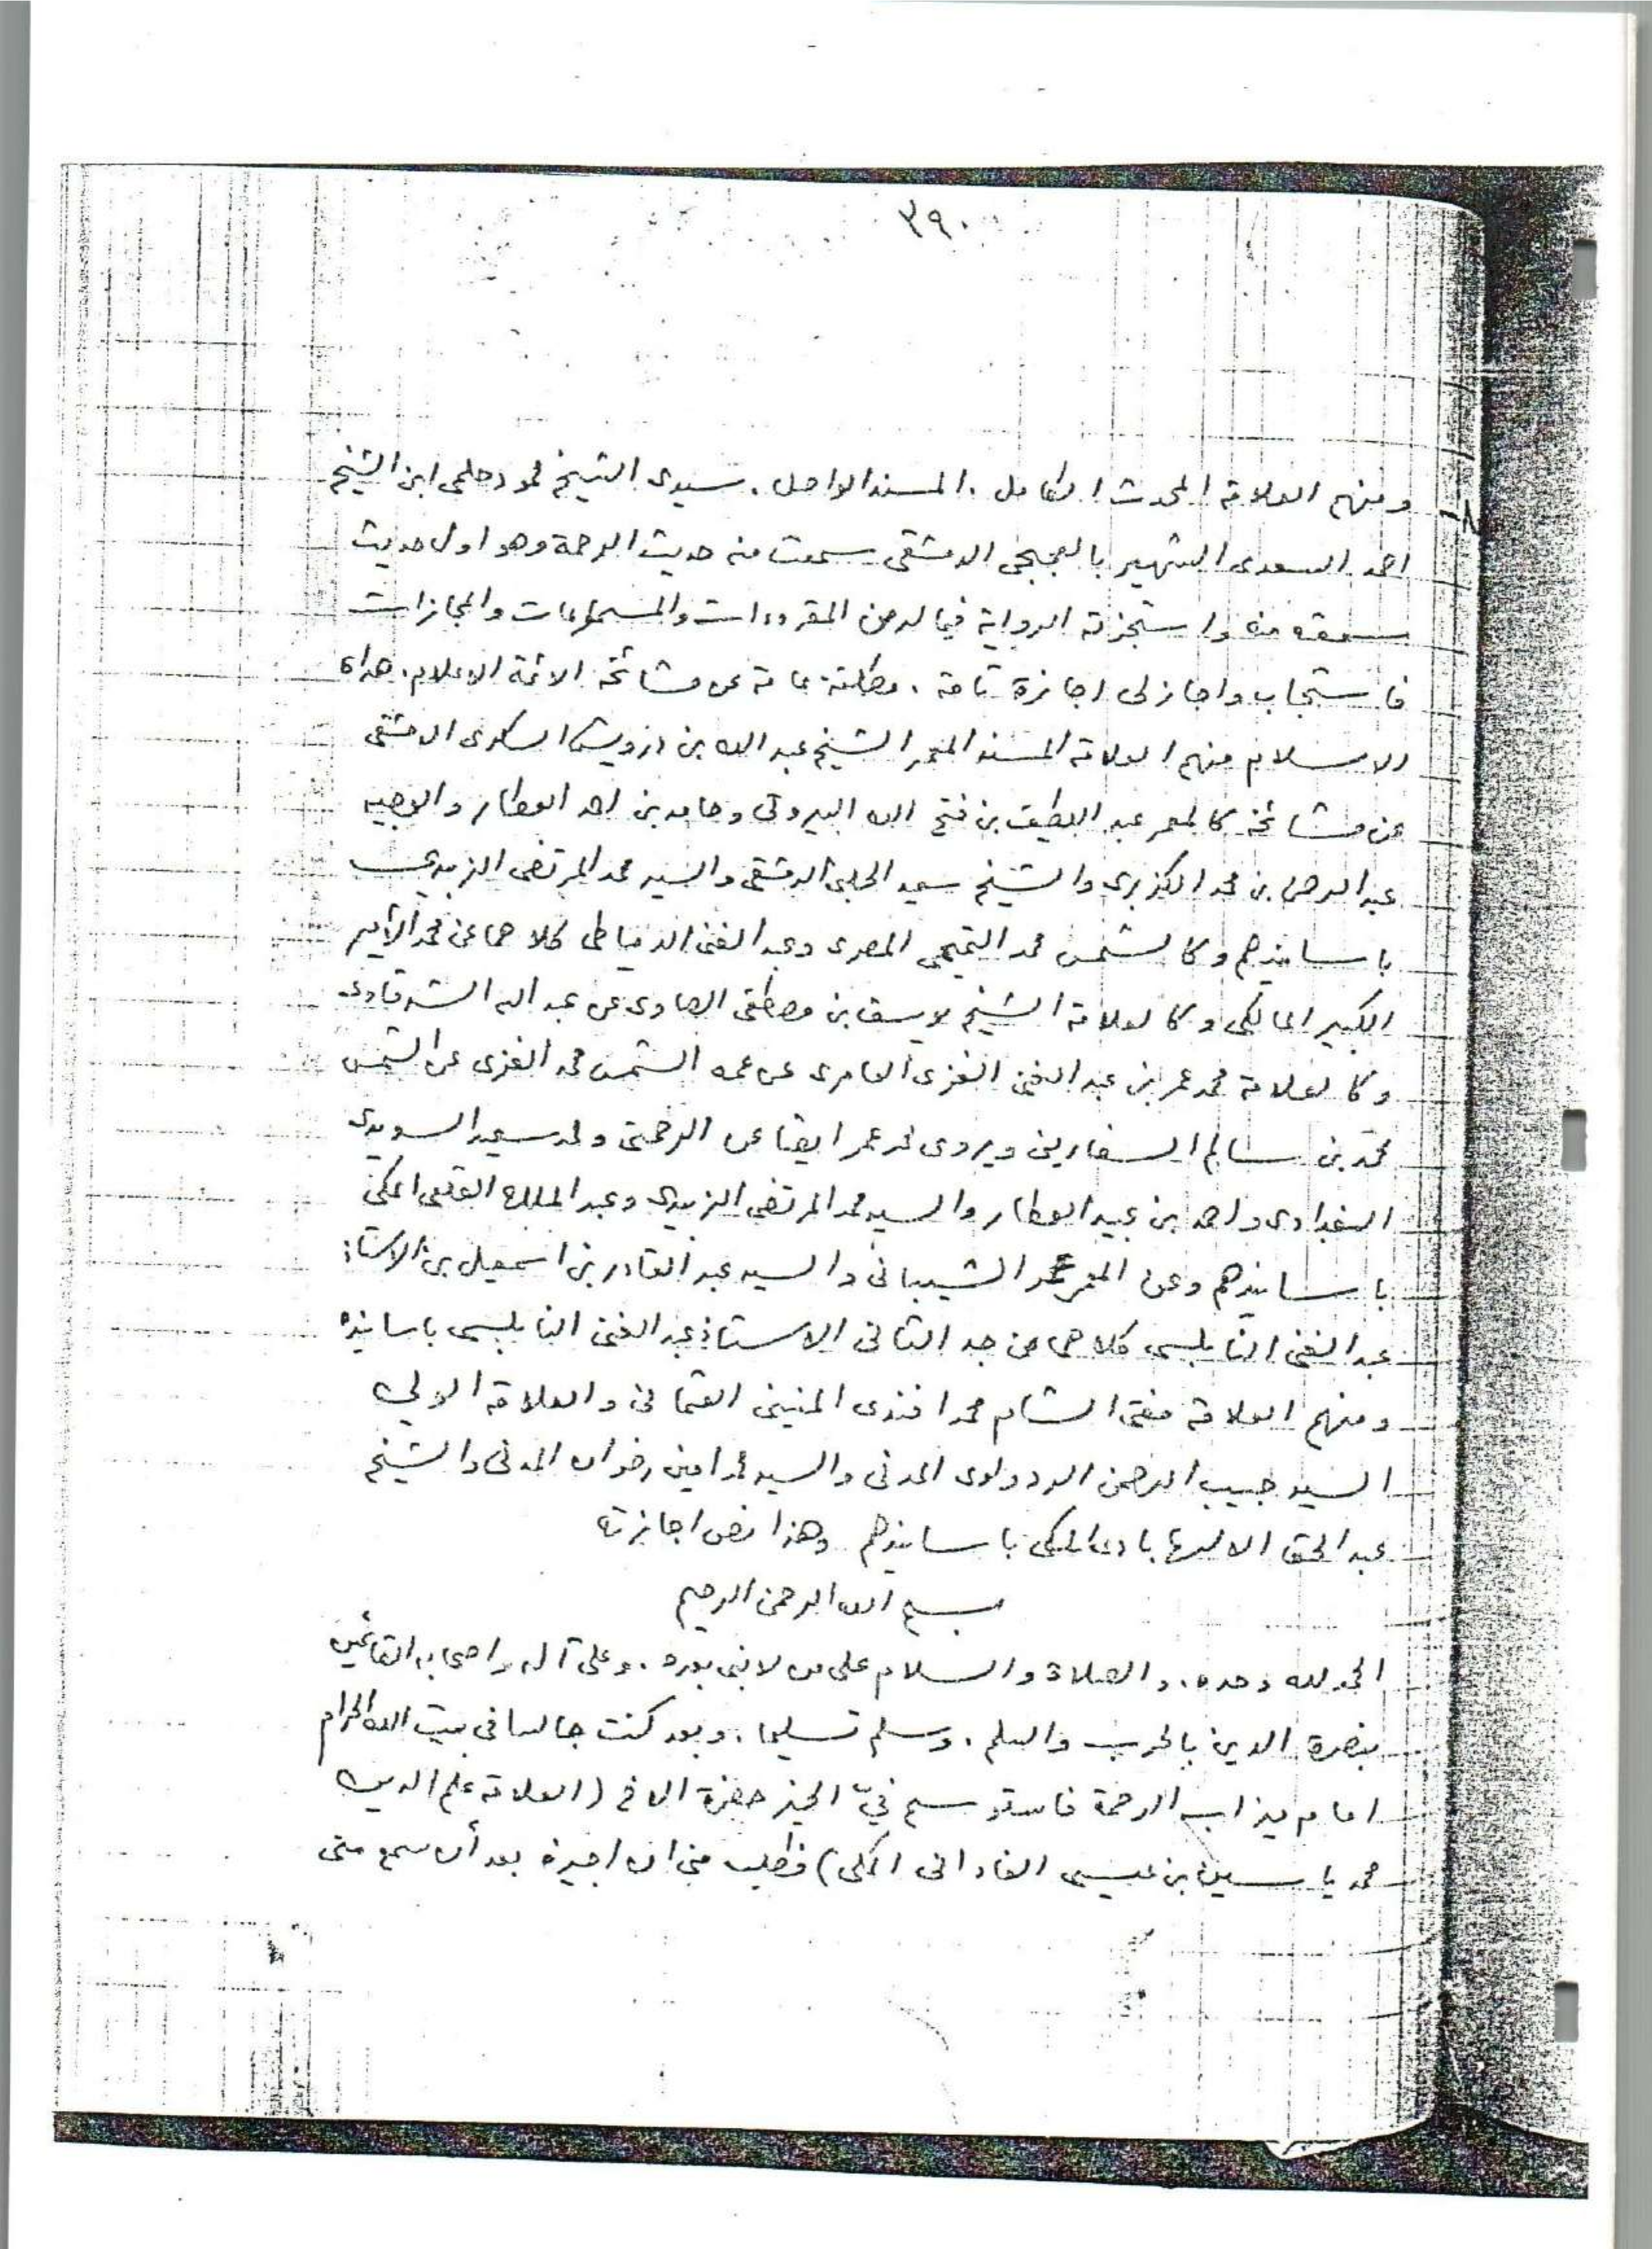 ٣٩٠
٨- ومنهم العلامة المحدث الكامل . المسند الواصل . سيدى الشيخ محمود حلمى ابن الشيخ
احمد السعدى الشهير بالجميجى الدمشقى سمعت منه حديث الرحمة وهو اول حديث
سمعته منه واستجزته الرواية فيما له من المقروءات والمسموعات والمجازات
فاستجاب واجاز لى اجازة تامة . مطلقة عامة عن مشائخه الائمة الاعلام . هداة
الاسلام منهم العلامة المسند المعمر الشيخ عبد الله بن درويش السكرى الدمشقى
عن مشائخه كالمعمر عبد اللطيف بن فتح الله البيروتى وحامد بن احمد العطار والوجيه
عبد الرحمن بن محمد الكزبرى والشيخ سعيد الحلبى الدمشقى والسيد محمد المرتضى الزبيدى
باسانيدهم وكالشمس محمد التميمى المصرى وعبد الغنى الدمياطى كلاهما عن محمد الأمير
الكبير المالكى وكالعلامة الشيخ يوسف بن مصطفى الصاوى عن عبد الله الشرقاوى
وكالعلامة محمد عمر بن عبد الغنى الغزى العامرى عن عمه الشمس محمد الغزى عن الشمس
محمد بن سالم السفارينى ويروى محمد عمر ايضا عن الرحمتى ومحمد سعيد السويدى
البغدادى واحمد بن عبيد العطار والسيد محمد المرتضى الزبيدى وعبد الملك القلعى المكى
باسانيدهم وعن المعمر الشيبانى والسيد عبد القادر بن اسمعيل بن الاستاذ
عبد الغنى النابلسى كلاهما عن جد الثانى الاستاذ عبد الغنى النابلسى باسانيده
ومنهم العلامة مفتى الشام محمد افندى المنينى العثمانى والعلامة الولى
السيد حبيب الرحمن الردولوى المدنى والسيد محمد امين رضوان المدنى والشيخ
عبد الحق الالهابادى المكى باسانيدهم وهذا نص اجازته
بسم الله الرحمن الرحيم
الحمد لله وحده . والصلاة والسلام على من لا نبى بعده . وعلى آله واصحابه القائمين
بنصرة الدين بالحرب والسلم . وسلم تسليما . وبعد كنت جالسا فى بيت الله الحرام
امام ميزاب الرحمة فاستوسم فيّ الخير حضرة الاخ (العلامة علم الدين
محمد ياسين بن عيسى الفادانى المكى) فطلب منى ان اجيزه بعد أن سمع منى